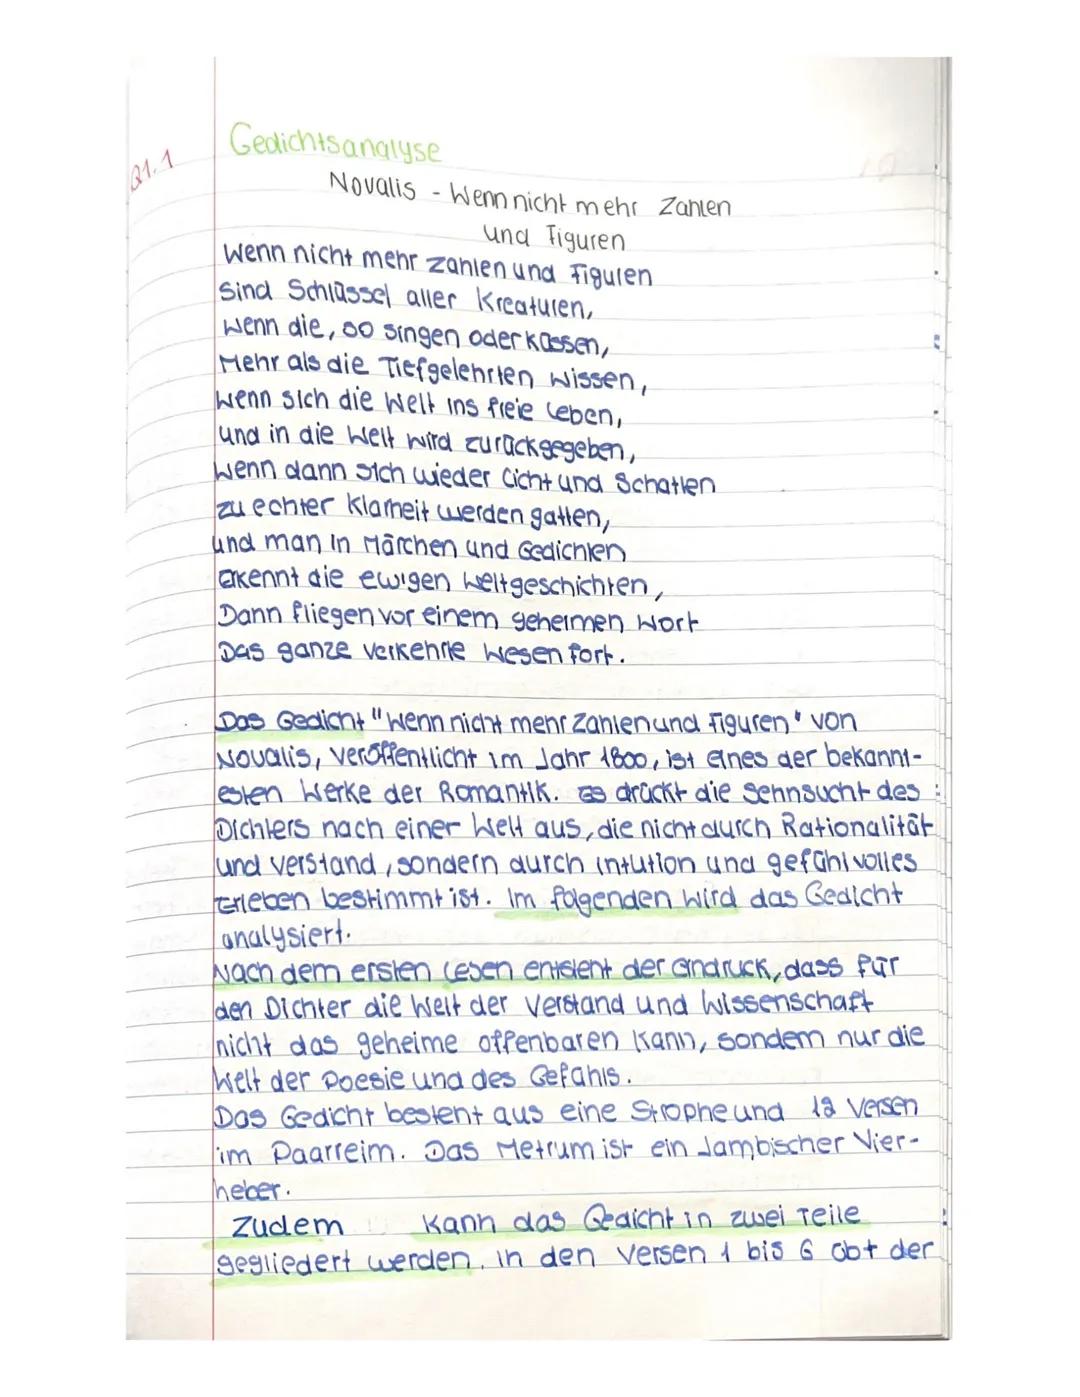 Gedichtsanalyse
Q1.1
Novalis - Wenn nicht mehr Zahlen
und Figuren
Wenn nicht mehr Zahlen und Figuren
Sind Schlüssel aller Kreaturen,
Wenn die, so singen oder küssen,
Mehr als die Tiefgelehrten wissen,
Wenn sich die Welt ins freie Leben,
und in die Welt wird zurückgegeben,
Wenn dann sich wieder Licht und Schatten
zu echter Klarheit werden gatten,
und man in Märchen und Gedichten
Erkennt die ewigen Weltgeschichten,
Dann fliegen vor einem geheimen Wort
Das ganze verkehrte Wesen fort.
Das Gedicht "Wenn nicht mehr Zahlen und Figuren" von
Novalis, veröffentlicht im Jahr 1800, ist eines der bekannt-
esten Werke der Romantik. Es drückt die Sehnsucht des
Dichters nach einer Welt aus, die nicht durch Rationalität
und Verstand, sondern durch intution und gefühlvolles
Erleben bestimmt ist. Im folgenden wird das Gedicht
analysiert.
Nach dem ersten Lesen entsteht der Eindruck, dass für
den Dichter die Welt der Verstand und Wissenschaft
nicht das geheime offenbaren kann, sondern nur die
Welt der Poesie und des Gefühls.
Das Gedicht besteht aus eine Strophe und 12 Versen
im Paarreim. Das Metrum ist ein Jambischer Vier-
heber.
Zudem kann das Gedicht in zwei Teile
gegliedert werden. in den Versen 1 bis 6 übt der